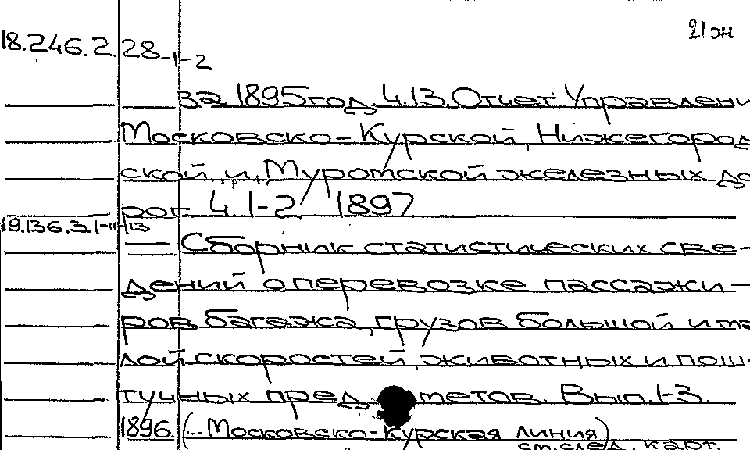 21 эн
18.246.2.28-1-2
За 1895 год. Ч.13. Отчет Управлени
Московско-Курской, Нижегород
ской и Муромской железных до
рог. Ч.1-2. 1897
19.136.3.1-11-13
— Сборник статистических све-
дений о перевозке пассажи-
ров, багажа, грузов большой и ма
лой скоростей, животных и пош-
тучных предметов. Вып. 1-3.
1896. (.. Московско-Курская линия)
см. след. карт.